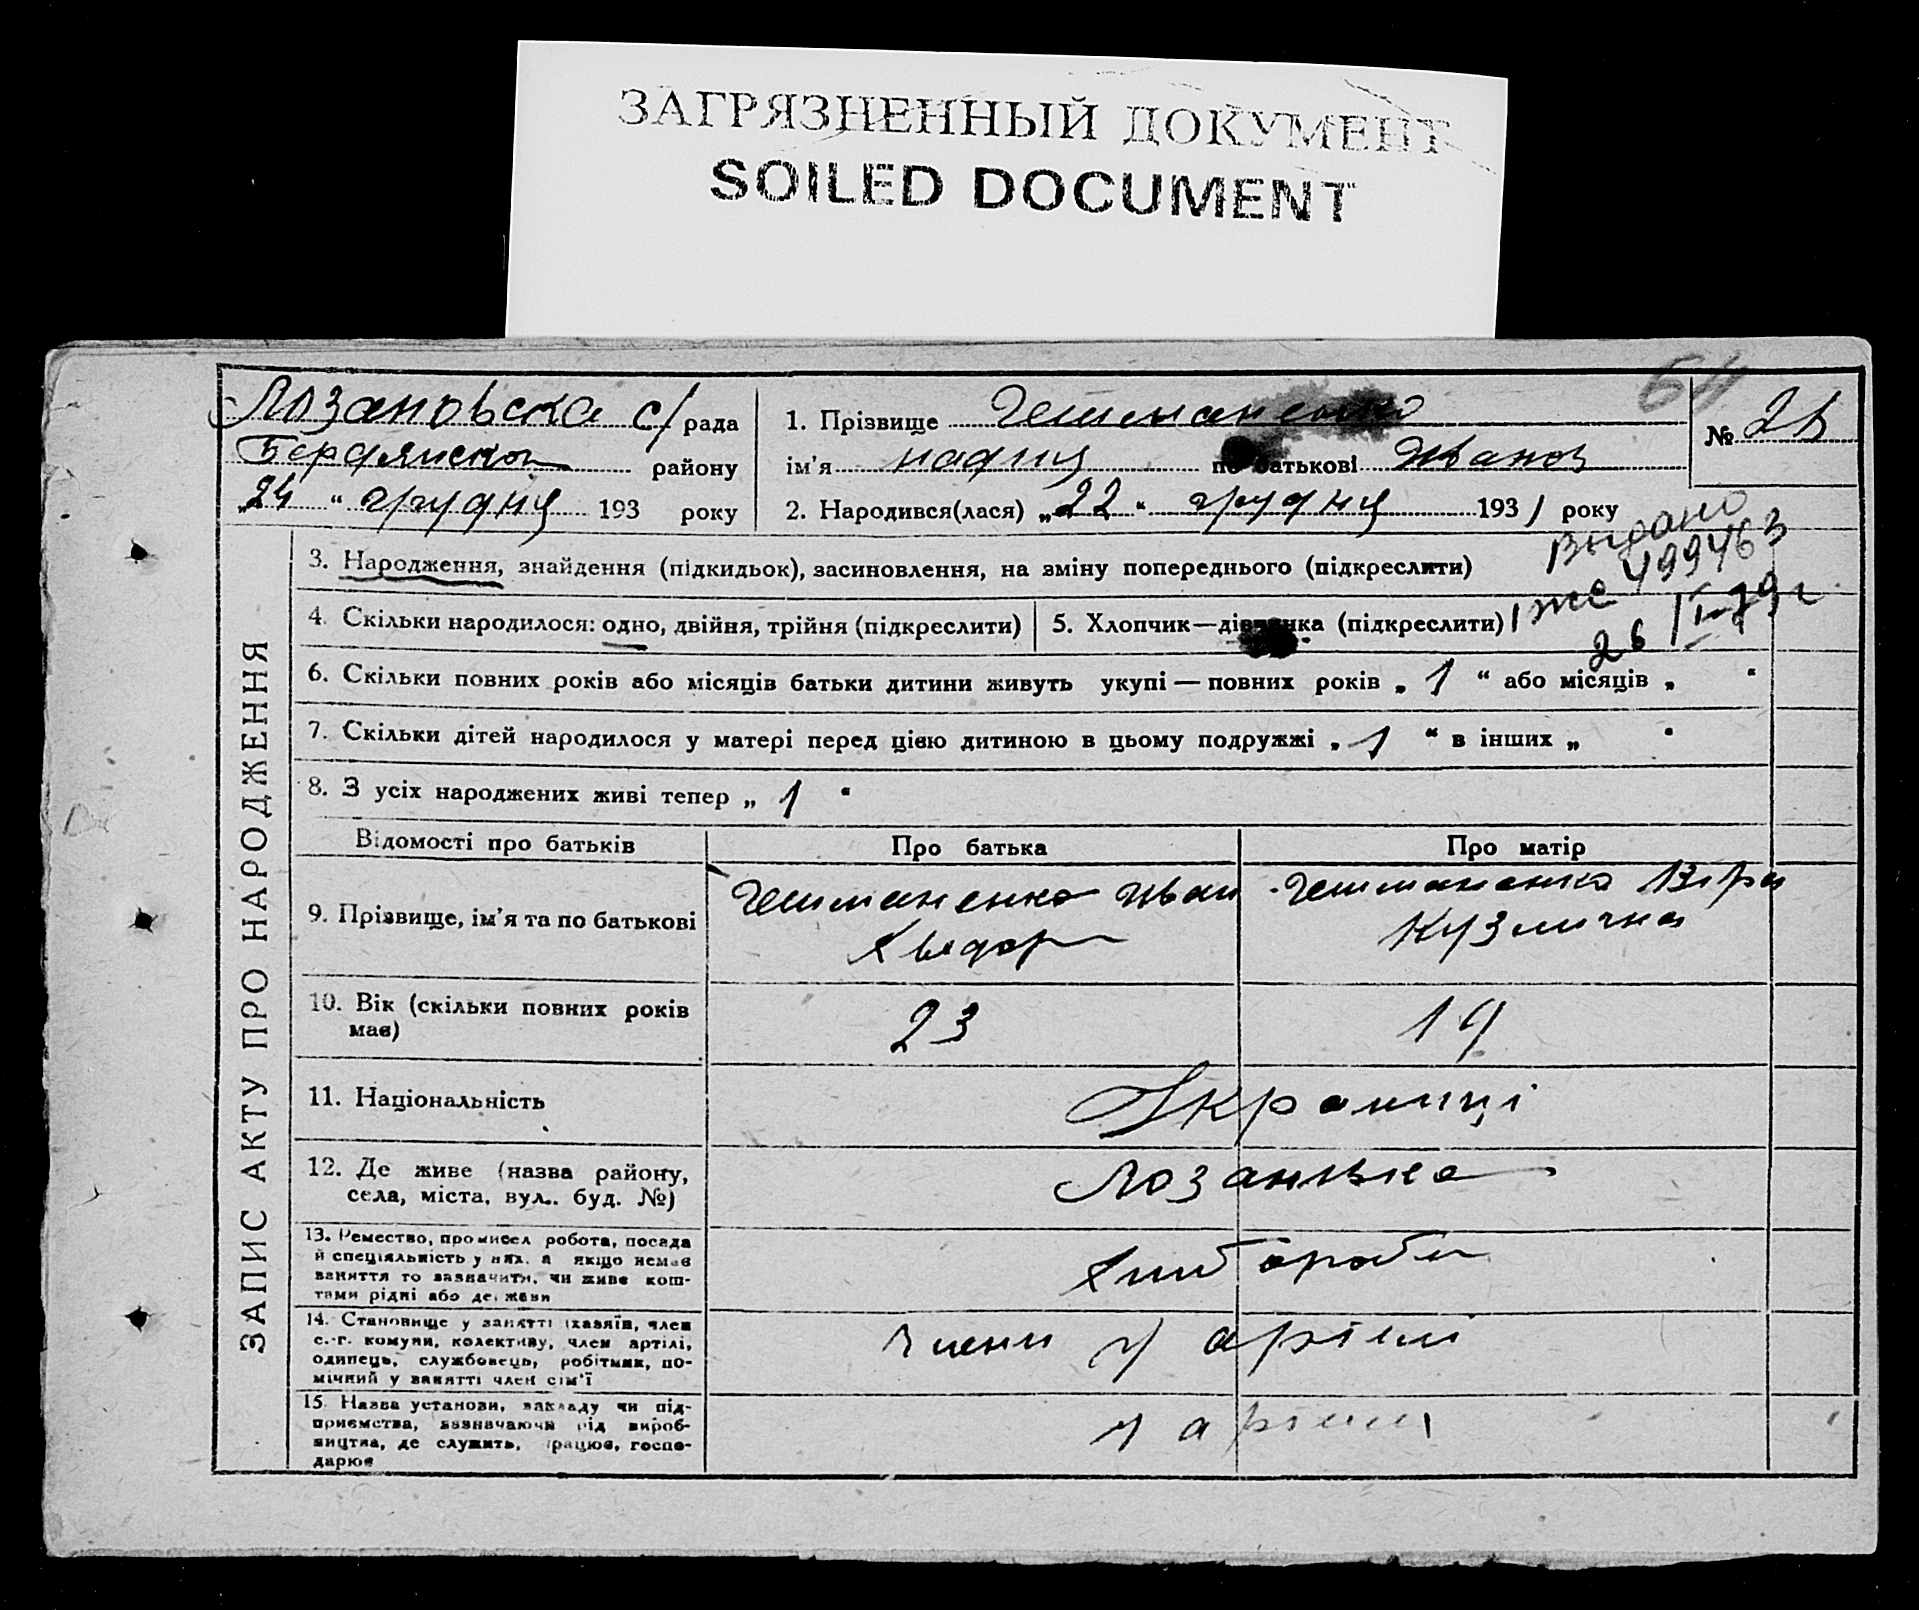 ЗАГРЯЗНЕННЫЙ ДОКУМЕНТ
SOILED DOCUMENT
64
Лозановска с/рада
району
„24“ грудня 193 року
1. Прізвище Гешманенко
ім'я Надия по батькові Иванов
2. Народився(лася) „22“ грудня 1931 року
№
Видано
499463
26
ЗАПИС АКТУ ПРО НАРОДЖЕННЯ
3. Народження, знайдення (підкидьок), засиновлення, на зміну попереднього (підкреслити)
4. Скільки народилося: одно, двійня, трійня (підкреслити)
5. Хлопчик—дівчинка (підкреслити)
6. Скільки повних років або місяців батьки дитини живуть укупі — повних років „ 1 “ або місяців „ “
7. Скільки дітей народилося у матері перед цією дитиною в цьому подружжі „ 1 “ в інших „ “
8. З усіх народжених живі тепер „ 1 “
Відомості про батьків
Про батька
Про матір
9. Прізвище, ім'я та по батькові
Гешманенко Иван
Гешманенко Віра
Кузмична
10. Вік (скільки повних років
має)
23
19
11. Національність
Украинці
12. Де живе (назва району,
села, міста, вул.. буд. №)
Лозанівка
13. Ремество, промисел робота, посада
й спеціяльність у них. а якщо немає
заняття то зазначити, чи живе кош-
тами рідні або держави
Хлібороби
14. Становище у занятті (хазяїн, член
с.-г. комуни, колективу, член артілі,
одинець, службовець, робітник, по-
мічний у занятті член сім'ї
Члени у артілі
15. Назва установи, закладу чи під-
приємства, зазначаючи рід вироб-
ництва, де служить, працює, госпо-
дарює
у артили